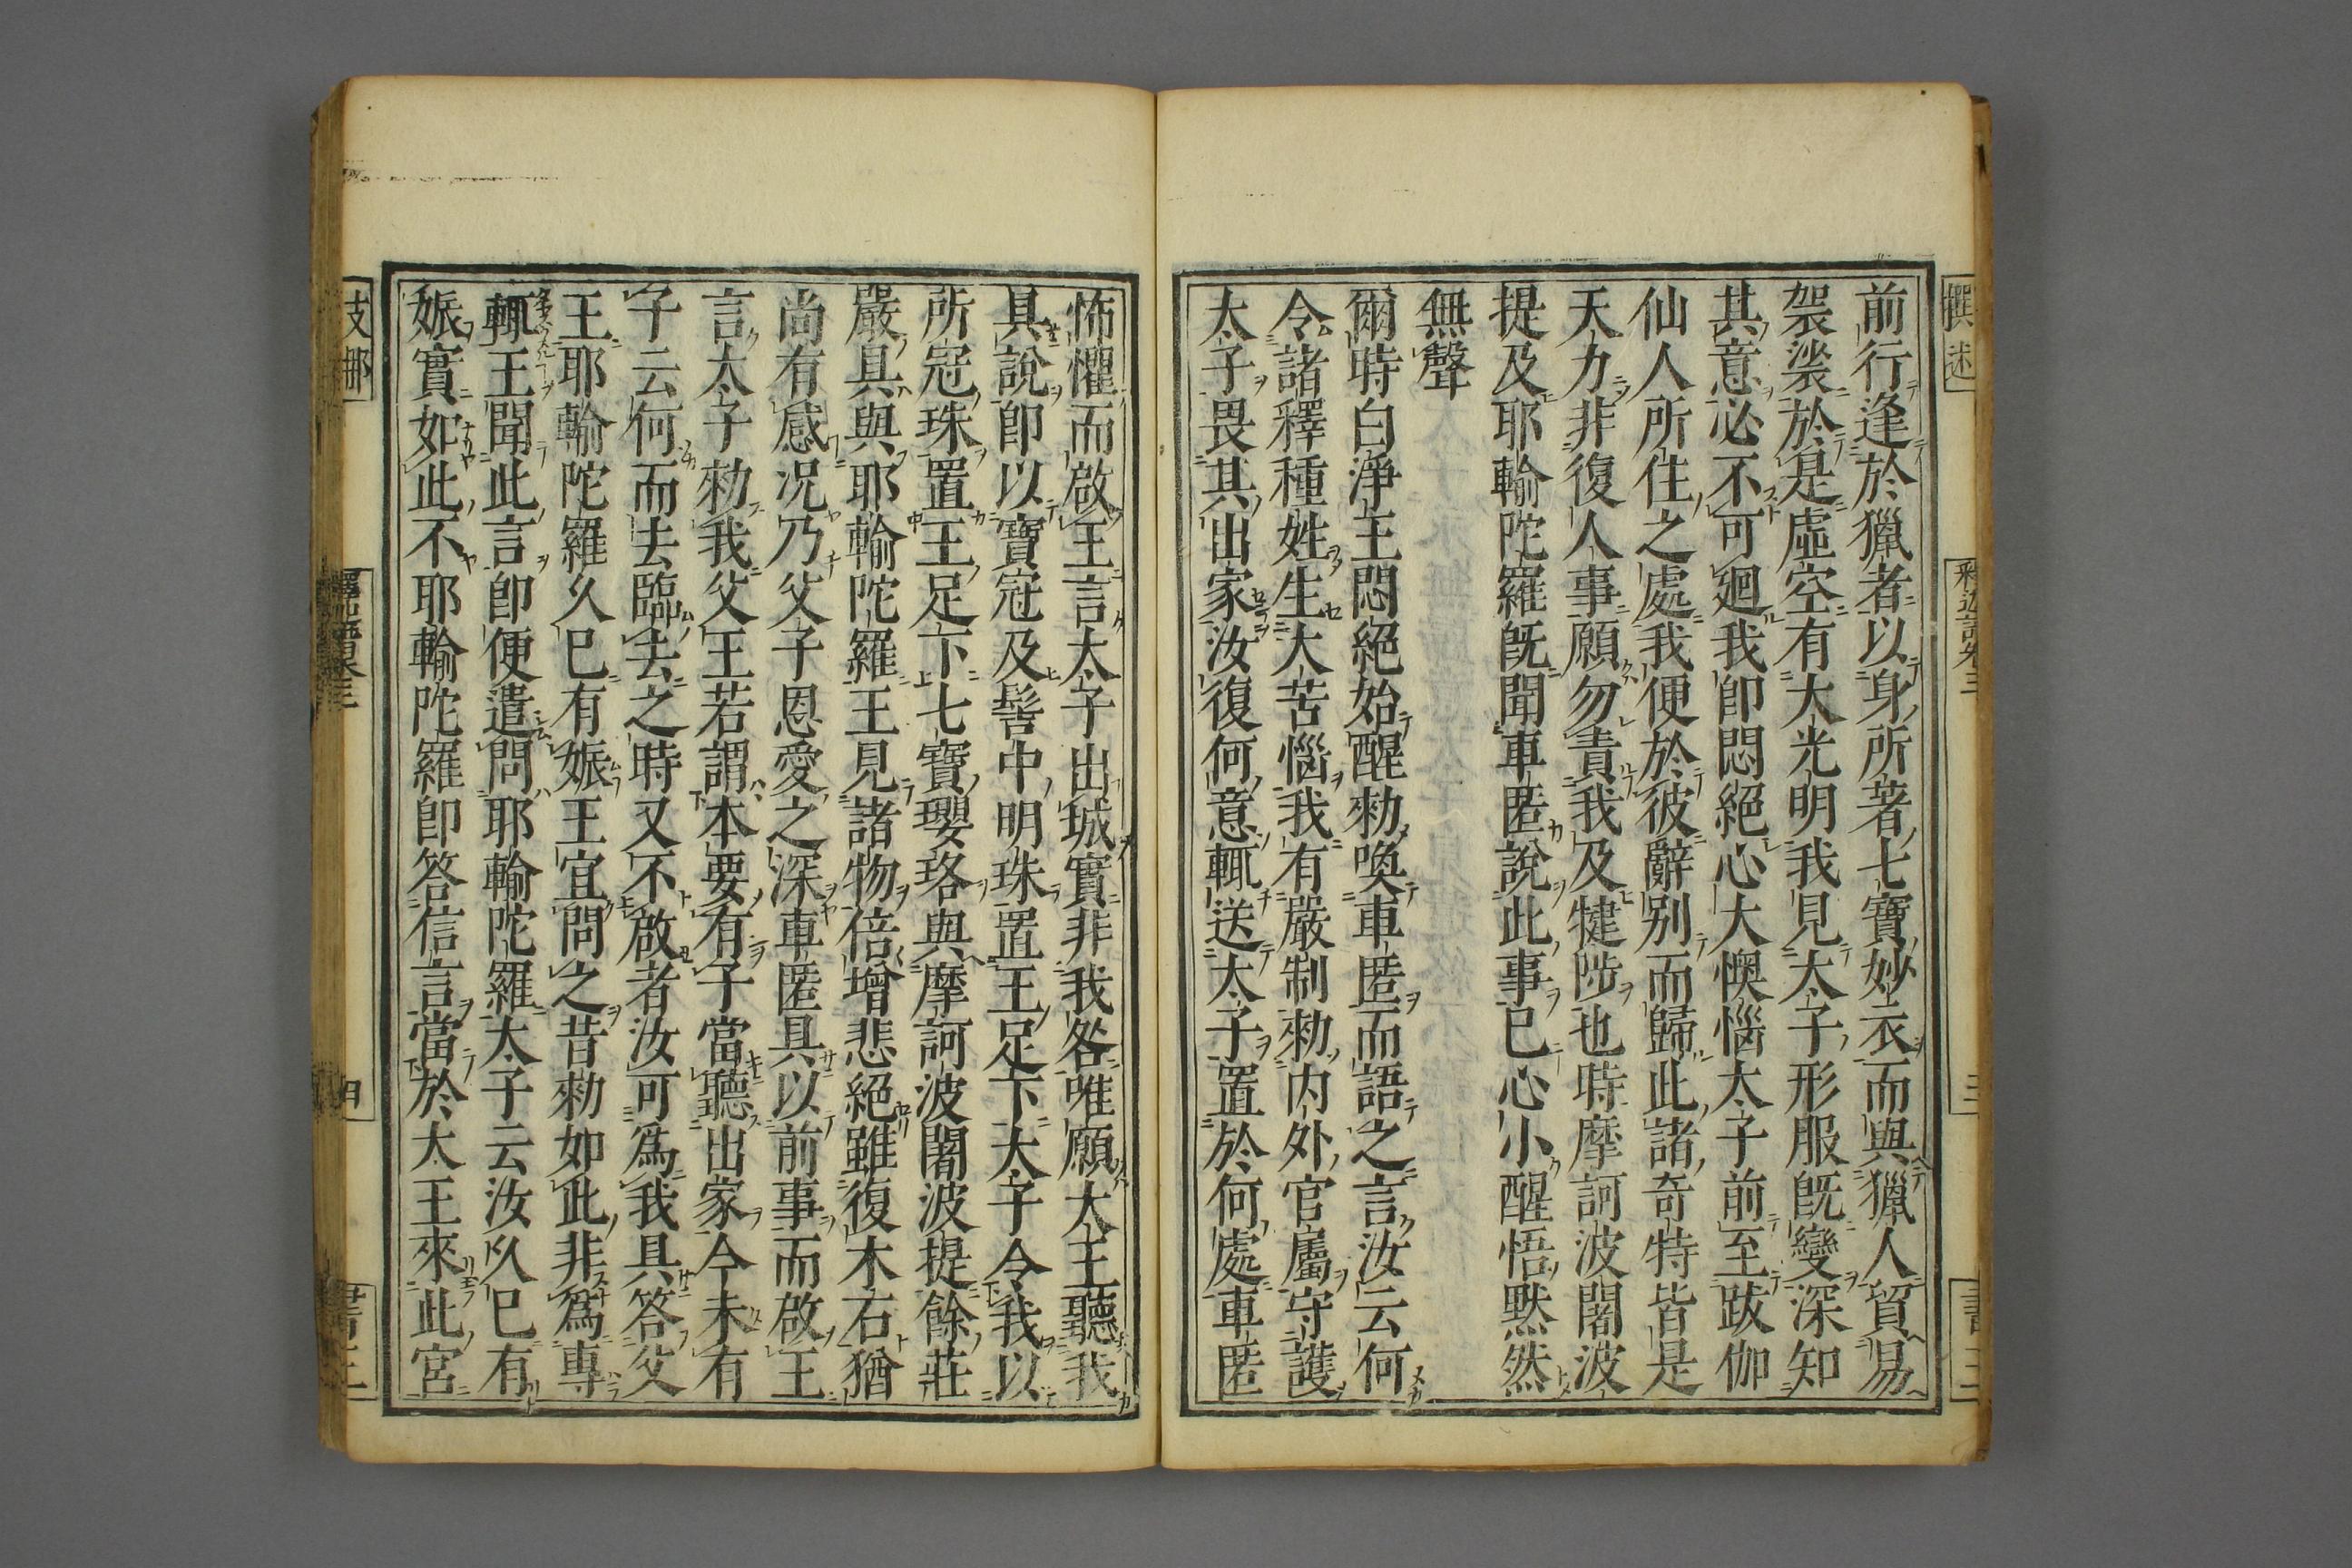 撰述
釋迦譜卷三
三
書三
前行逢於獵者以身所著七寶妙衣而與獵人貿易
袈裟於是虛空有大光明我見太子形服旣變深知
其意必不可廻我卽悶絕心大懊惱太子前至跋伽
仙人所住之處我便於彼辭别而歸此諸奇特皆是
天力非復人事願勿責我及犍陟也時摩訶波闍波
提及耶輸陀羅旣聞車匿說此事已心小醒悟黙然
無聲
爾時白淨王悶絕始醒勑喚車匿而語之言汝云何
令諸釋種姓生大苦惱我有嚴制勑内外官屬守護
太子畏其出家汝復何意輒送太子置於何處車匿
怖懼而啟王言太子出城實非我咎唯願大王聽我
具說卽以寶冠及髻中明珠置王足下太子令我以
所冠珠置王足下七寶瓔珞與摩訶波闍波提餘莊
嚴具與耶輸陀羅王見諸物倍增悲絕雖復木石猶
尚有感況乃父子恩愛之深車匿具以前事而啟王
言太子勑我父王若謂本要有子當聽出家今未有
子云何而去臨去之時又不啟者汝可爲我具答父
王耶輸陀羅久已有娠王宜問之昔勑如此非爲專
輒王聞此言卽便遣問耶輸陀羅太子云汝久已有
娠實如此不耶輸陀羅卽答信言當於大王來此宮
支那
釋迦譜卷三
四
書三